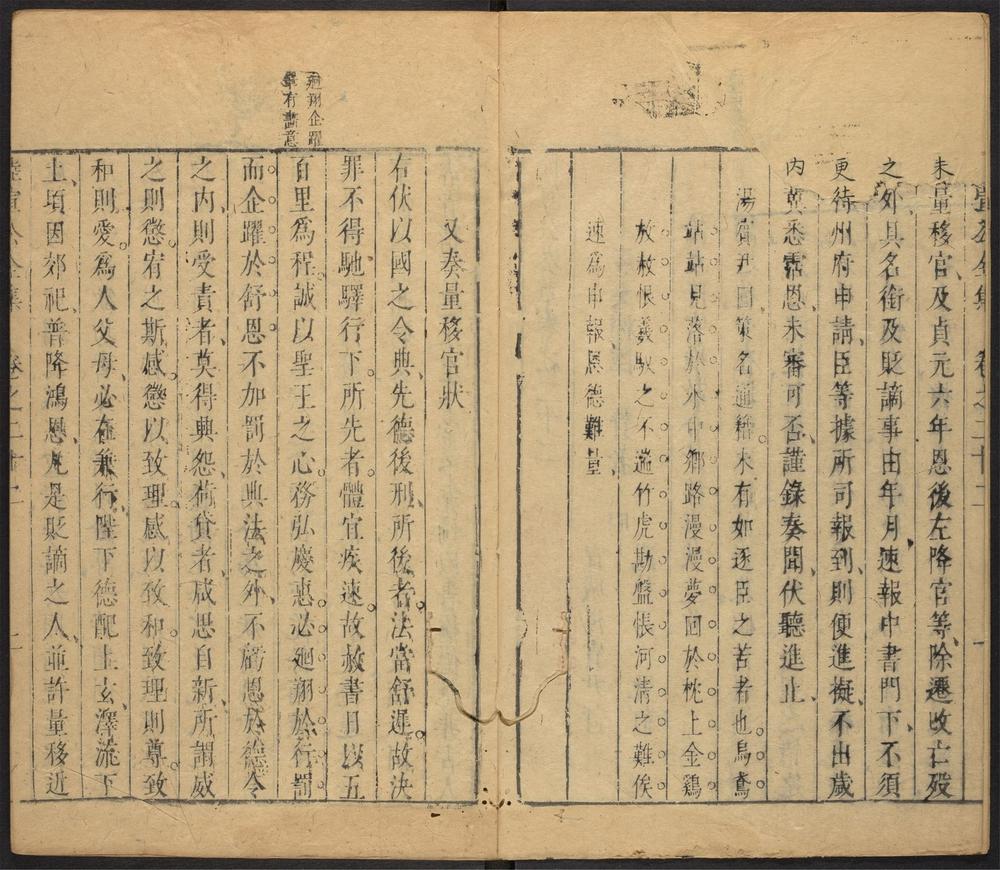 宣公全集 卷之二十二 一
未量移官及貞元六年恩後左降官等除遷改亡歿
之外具名銜及貶謫事由年月速報中書門下不須
更待州府申請臣等據所司報到則便進擬不出歲
内冀悉霑恩未審可否謹錄奏聞伏聽進止
湯賓尹曰策名通籍未有如逐臣之苦者也烏鳶
站站見落於水中鄉路漫漫夢回於枕上金鷄
放赦恨羲馭之不遄竹虎勘盤悵河清之難俟
速爲申報恩德難量
又奏量移官狀
右伏以國之令典先德後刑所後者法當舒遲故決
罪不得馳驛行下所先者體宜疾速故赦書日以五
百里爲程誠以聖王之心務弘慶惠必廻翔於行罰
而企躍於舒恩不加罰於典法之外不虧恩於德令
之内則受責者莫得興怨荷貸者咸思自新所謂威
之則懲宥之斯感懲以致理感以致和致理則尊致
和則愛爲人父母必在兼行陛下德配上玄澤流下
土頃因郊祀普降鴻恩凡是貶謫之人並許量移近
廻翔企躍
有意
陸宣公全集 卷之二十二